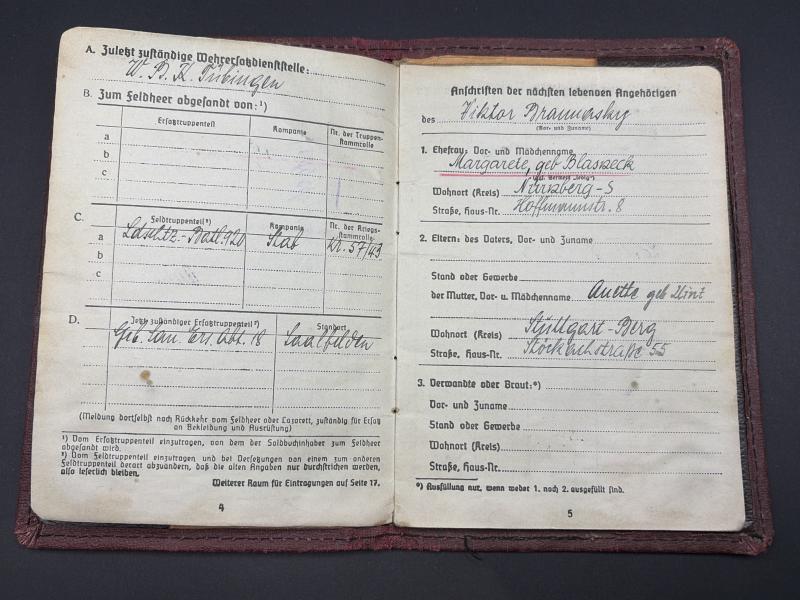 A. Zuletzt zuständige Wehrersatzdienststelle:
W. B. K. Tübingen
B. Zum Feldheer abgesandt von:¹)
Ersatztruppenteil
Kompanie
Nr. der Truppenstammrolle
a
b
c
C.
Feldtruppenteil²)
Kompanie
Nr. der Kriegsstammrolle
a
Batl. 920
Stab
Nr. 57/43
b
c
D.
Jetzt zuständiger Ersatztruppenteil²)
Standort
Geb. San. Ers. Abt. 18
Saalfelden
(Meldung dortselbst nach Rückkehr vom Feldheer oder Lazarett, zuständig für Ersatz
an Bekleidung und Ausrüstung)
¹) Vom Ersatztruppenteil einzutragen, von dem der Soldbuchinhaber zum Feldheer
abgesandt wird.
²) Vom Feldtruppenteil einzutragen und bei Versetzungen von einem zum anderen
Feldtruppenteil derart abzuändern, daß die alten Angaben nur durchstrichen werden,
also leserlich bleiben.
Weiterer Raum für Eintragungen auf Seite 17.
4
Anschriften der nächsten lebenden Angehörigen
des Viktor
(Vor- und Zuname)
1. Ehefrau: Vor- und Mädchenname
Margarete, geb
(ggf. Vermerk „ledig")
Wohnort (Kreis) Nürnberg-S
Straße, Haus-Nr. Hoffmannstr. 8
2. Eltern: des Vaters, Vor- und Zuname
Stand oder Gewerbe
der Mutter, Vor- u. Mädchenname Anette geb
Wohnort (Kreis) Stuttgart-Berg
Straße, Haus-Nr. Stöckachstraße 55
3. Verwandte oder Braut:*)
Vor- und Zuname
Stand oder Gewerbe
Wohnort (Kreis)
Straße, Haus-Nr.
*) Ausfüllung nur, wenn weder 1. noch 2. ausgefüllt sind.
5